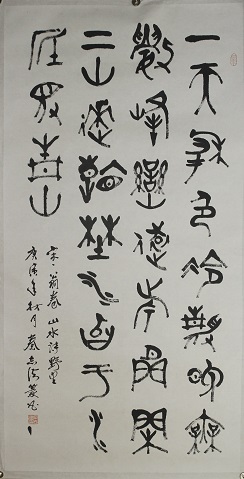 一天秋色冷晴灣無
數峰巒遠近間閑
上山來看野水忽于水
底見青山
宋翁卷山水詩野望
年秋月